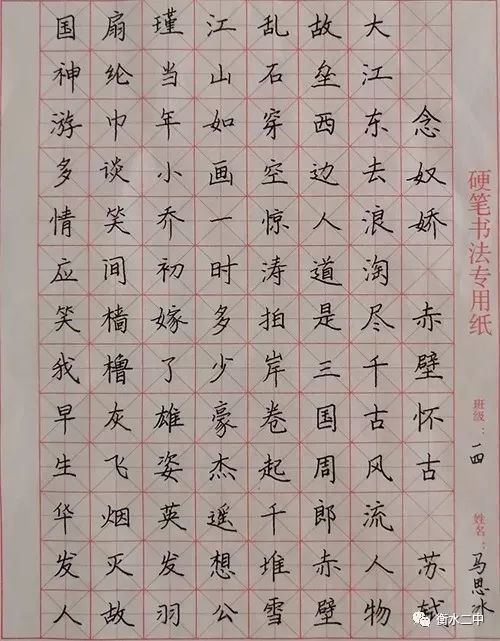 硬笔书法专用纸
班级：一四
姓名：马思冰
念奴娇 赤壁怀古 苏轼
大江东去浪淘尽千古风流人物
故垒西边人道是三国周郎赤壁
乱石穿空惊涛拍岸卷起千堆雪
江山如画一时多少豪杰遥想公
瑾当年小乔初嫁了雄姿英发羽
扇纶巾谈笑间樯橹灰飞烟灭故
国神游多情应笑我早生华发人
衡水二中